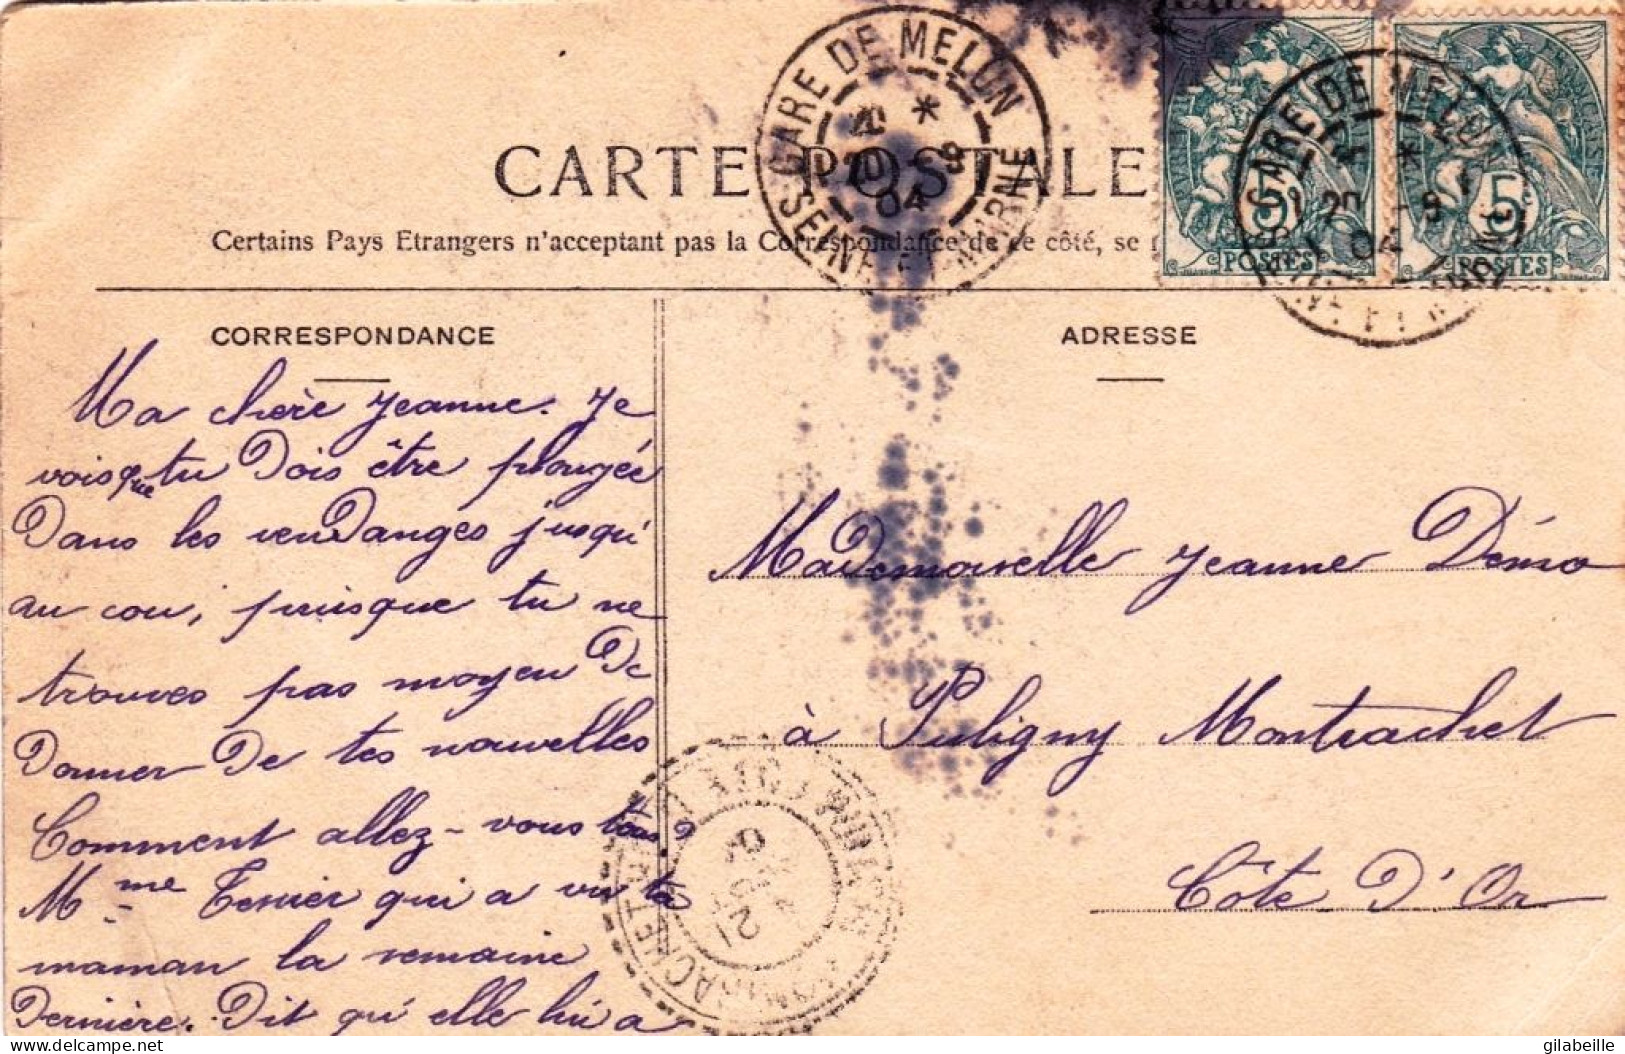 CARTE POSTALE
Certains Pays Etrangers n'acceptant pas la Correspondance de ce côté, se
GARE DE MELUN
SEINE ET MARNE
20 -9
04
GARE DE MELUN
20 -9
04
5c
POSTES
5c
POSTES
CORRESPONDANCE
Ma chère Jeanne. Je
vois que tu Dois être plongée
Dans les venDanges jusqu'
au cou, puisque tu ne
trouves pas moyen De
Donner De tes nouvelles
Comment allez-vous tous?
Mme Tenier qui a vu ta
maman la semaine
Dernière. Dit qu'elle lui a
ADRESSE
Mademoiselle Jeanne
à Puligny Montrachet
Côte D'Or
PULIGNY
MONTRACHET
21
delcampe.net
gilabeille